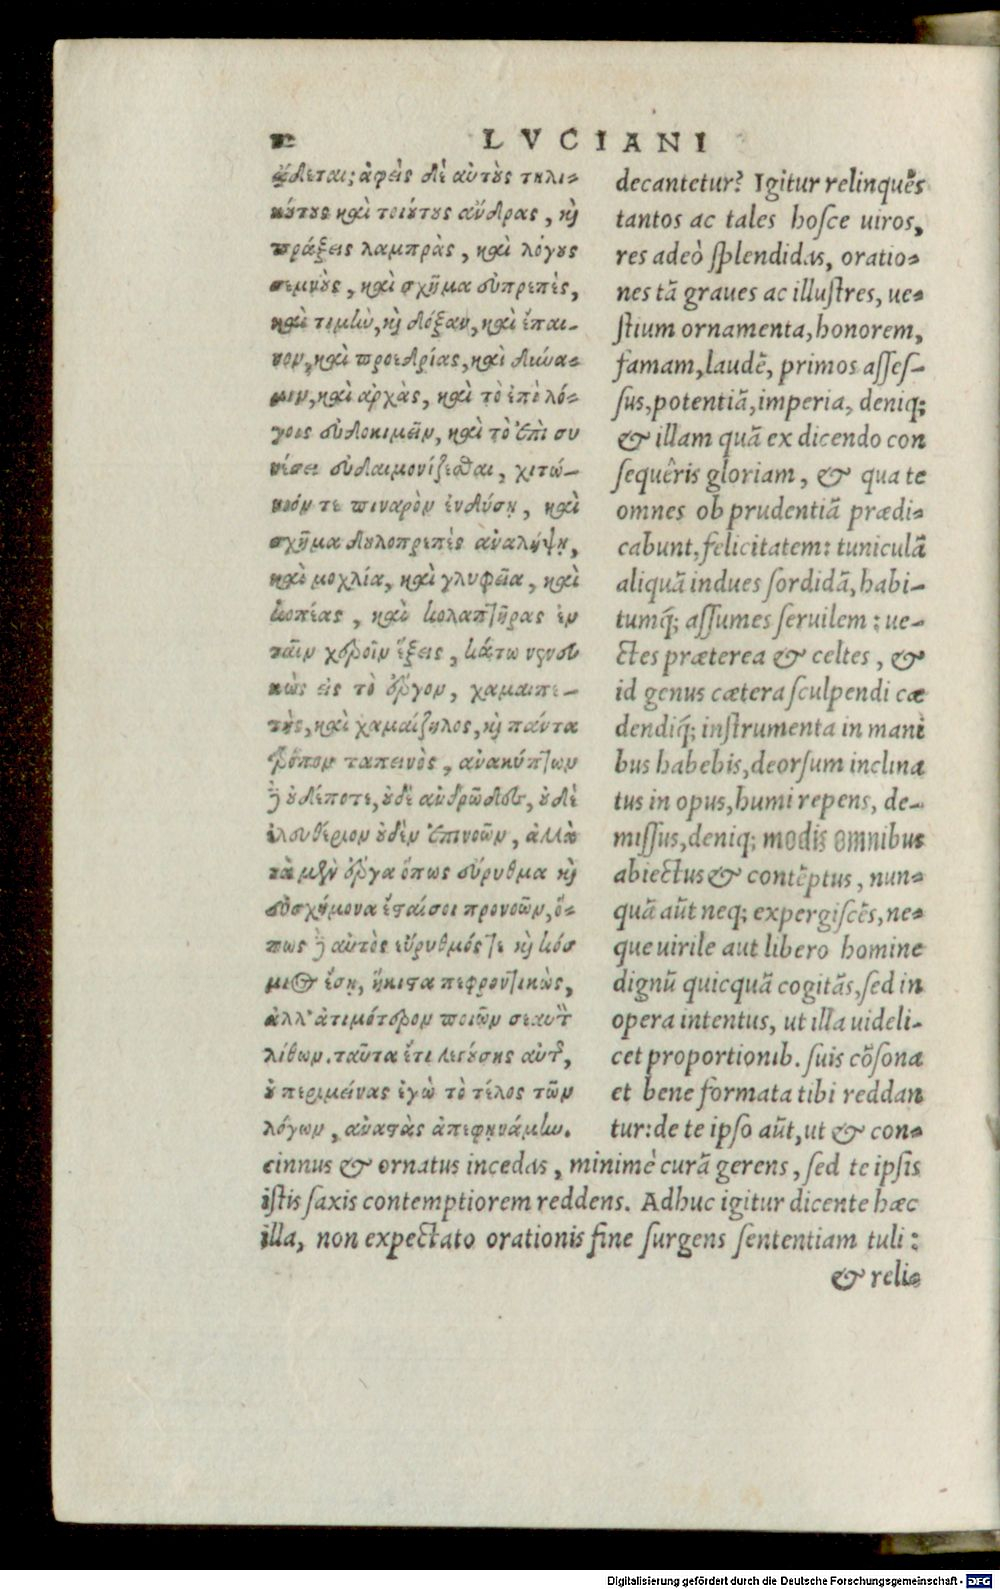 12 LVCIANI
ᾄδεται; ἀφεὶς δὲ αὐτοὺς τηλι-
κούτους καὶ τοιούτους ἄνδρας, καὶ
πράξεις λαμπρὰς, καὶ λόγους
σεμνοὺς, καὶ σχῆμα εὐπρεπὲς,
καὶ τιμὴν, καὶ δόξαν, καὶ ἔπαι-
νον, καὶ προεδρίας, καὶ δύνα-
μιν, καὶ ἀρχὰς, καὶ τὸ ἐπὶ λό-
γοις εὐδοκιμεῖν, καὶ τὸ ἐπὶ συ
νέσει εὐδαιμονίζεσθαι, χιτώ-
νιόν τε πιναρὸν ἐνδύσῃ, καὶ
σχῆμα δουλοπρεπὲς ἀναλήψῃ,
καὶ μοχλία, καὶ γλυφεῖα, καὶ
κοπέας, καὶ κολαπτῆρας ἐν
ταῖν χεροῖν ἕξεις, κάτω νενευ
κὼς εἰς τὸ ἔργον, χαμαιπε-
τὴς, καὶ χαμαίζηλος, καὶ πάντα
τρόπον ταπεινὸς, ἀνακύπτων
δὲ οὐδέποτε, οὐδὲ ἀνδρῶδες, οὐδὲ
ἐλευθέριον οὐδὲν ἐπινοῶν, ἀλλὰ
τὰ μὲν ἔργα ὅπως εὔρυθμα καὶ
εὐσχήμονα ἔσται σοι προνοῶν, ὅ-
πως δὲ αὐτὸς εὔρυθμός τε καὶ κόσ
μιος ἔσῃ, ἥκιστα πεφροντικὼς,
ἀλλ' ἀτιμότερον ποιῶν σεαυτὸν
λίθων. ταῦτα ἔτι λεγούσης αὐτῆς,
οὐ περιμείνας ἐγὼ τὸ τέλος τῶν
λόγων, ἀναστὰς ἀπεφηνάμην.
decantetur? Igitur relinquẽs
tantos ac tales hosce uiros,
res adeò splendidas, oratio-
nes tã graues ac illustres, ue-
stium ornamenta, honorem,
famam, laudẽ, primos asses-
sus, potentiã, imperia, deniq;
& illam quã ex dicendo con
sequêris gloriam, & qua te
omnes ob prudentiã prædi-
cabunt, felicitatem: tuniculã
aliquã indues sordidã, habi-
tumq́; assumes seruilem: ue-
ctes præterea & celtes, &
id genus cætera sculpendi cæ
dendiq́; instrumenta in mani
bus habebis, deorsum inclina
tus in opus, humi repens, de-
missus, deniq; modis omnibus
abiectus & contẽptus, nun-
quã aũt neq; expergiscẽs, ne-
que uirile aut libero homine
dignũ quicquã cogitãs, sed in
opera intentus, ut illa uideli-
cet proportionib. suis cõsona
et bene formata tibi reddan
tur: de te ipso aũt, ut & con-
cinnus & ornatus incedas, minimè curã gerens, sed te ipsis
istis saxis contemptiorem reddens. Adhuc igitur dicente hæc
illa, non expectato orationis fine surgens sententiam tuli:
& reli-
Digitalisierung gefördert durch die Deutsche Forschungsgemeinschaft - DFG